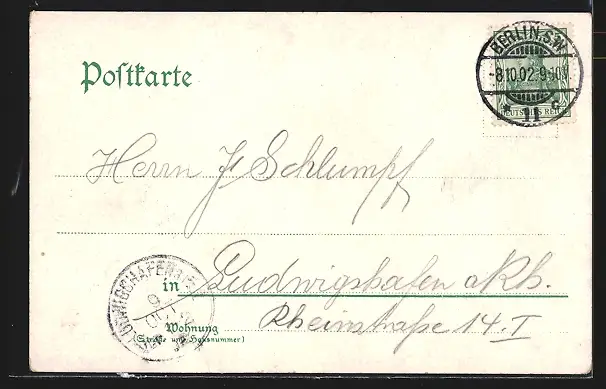 Postkarte
BERLIN.S.W
-8.10.02.9-10V.
* 11 c
DEUTSCHES REICH
Herrn J. Schlumpf
in Ludwigshafen a Rh.
Wohnung
(Straße und Hausnummer)
Rheinstraße 14. I
LUDWIGSHAFEN
9